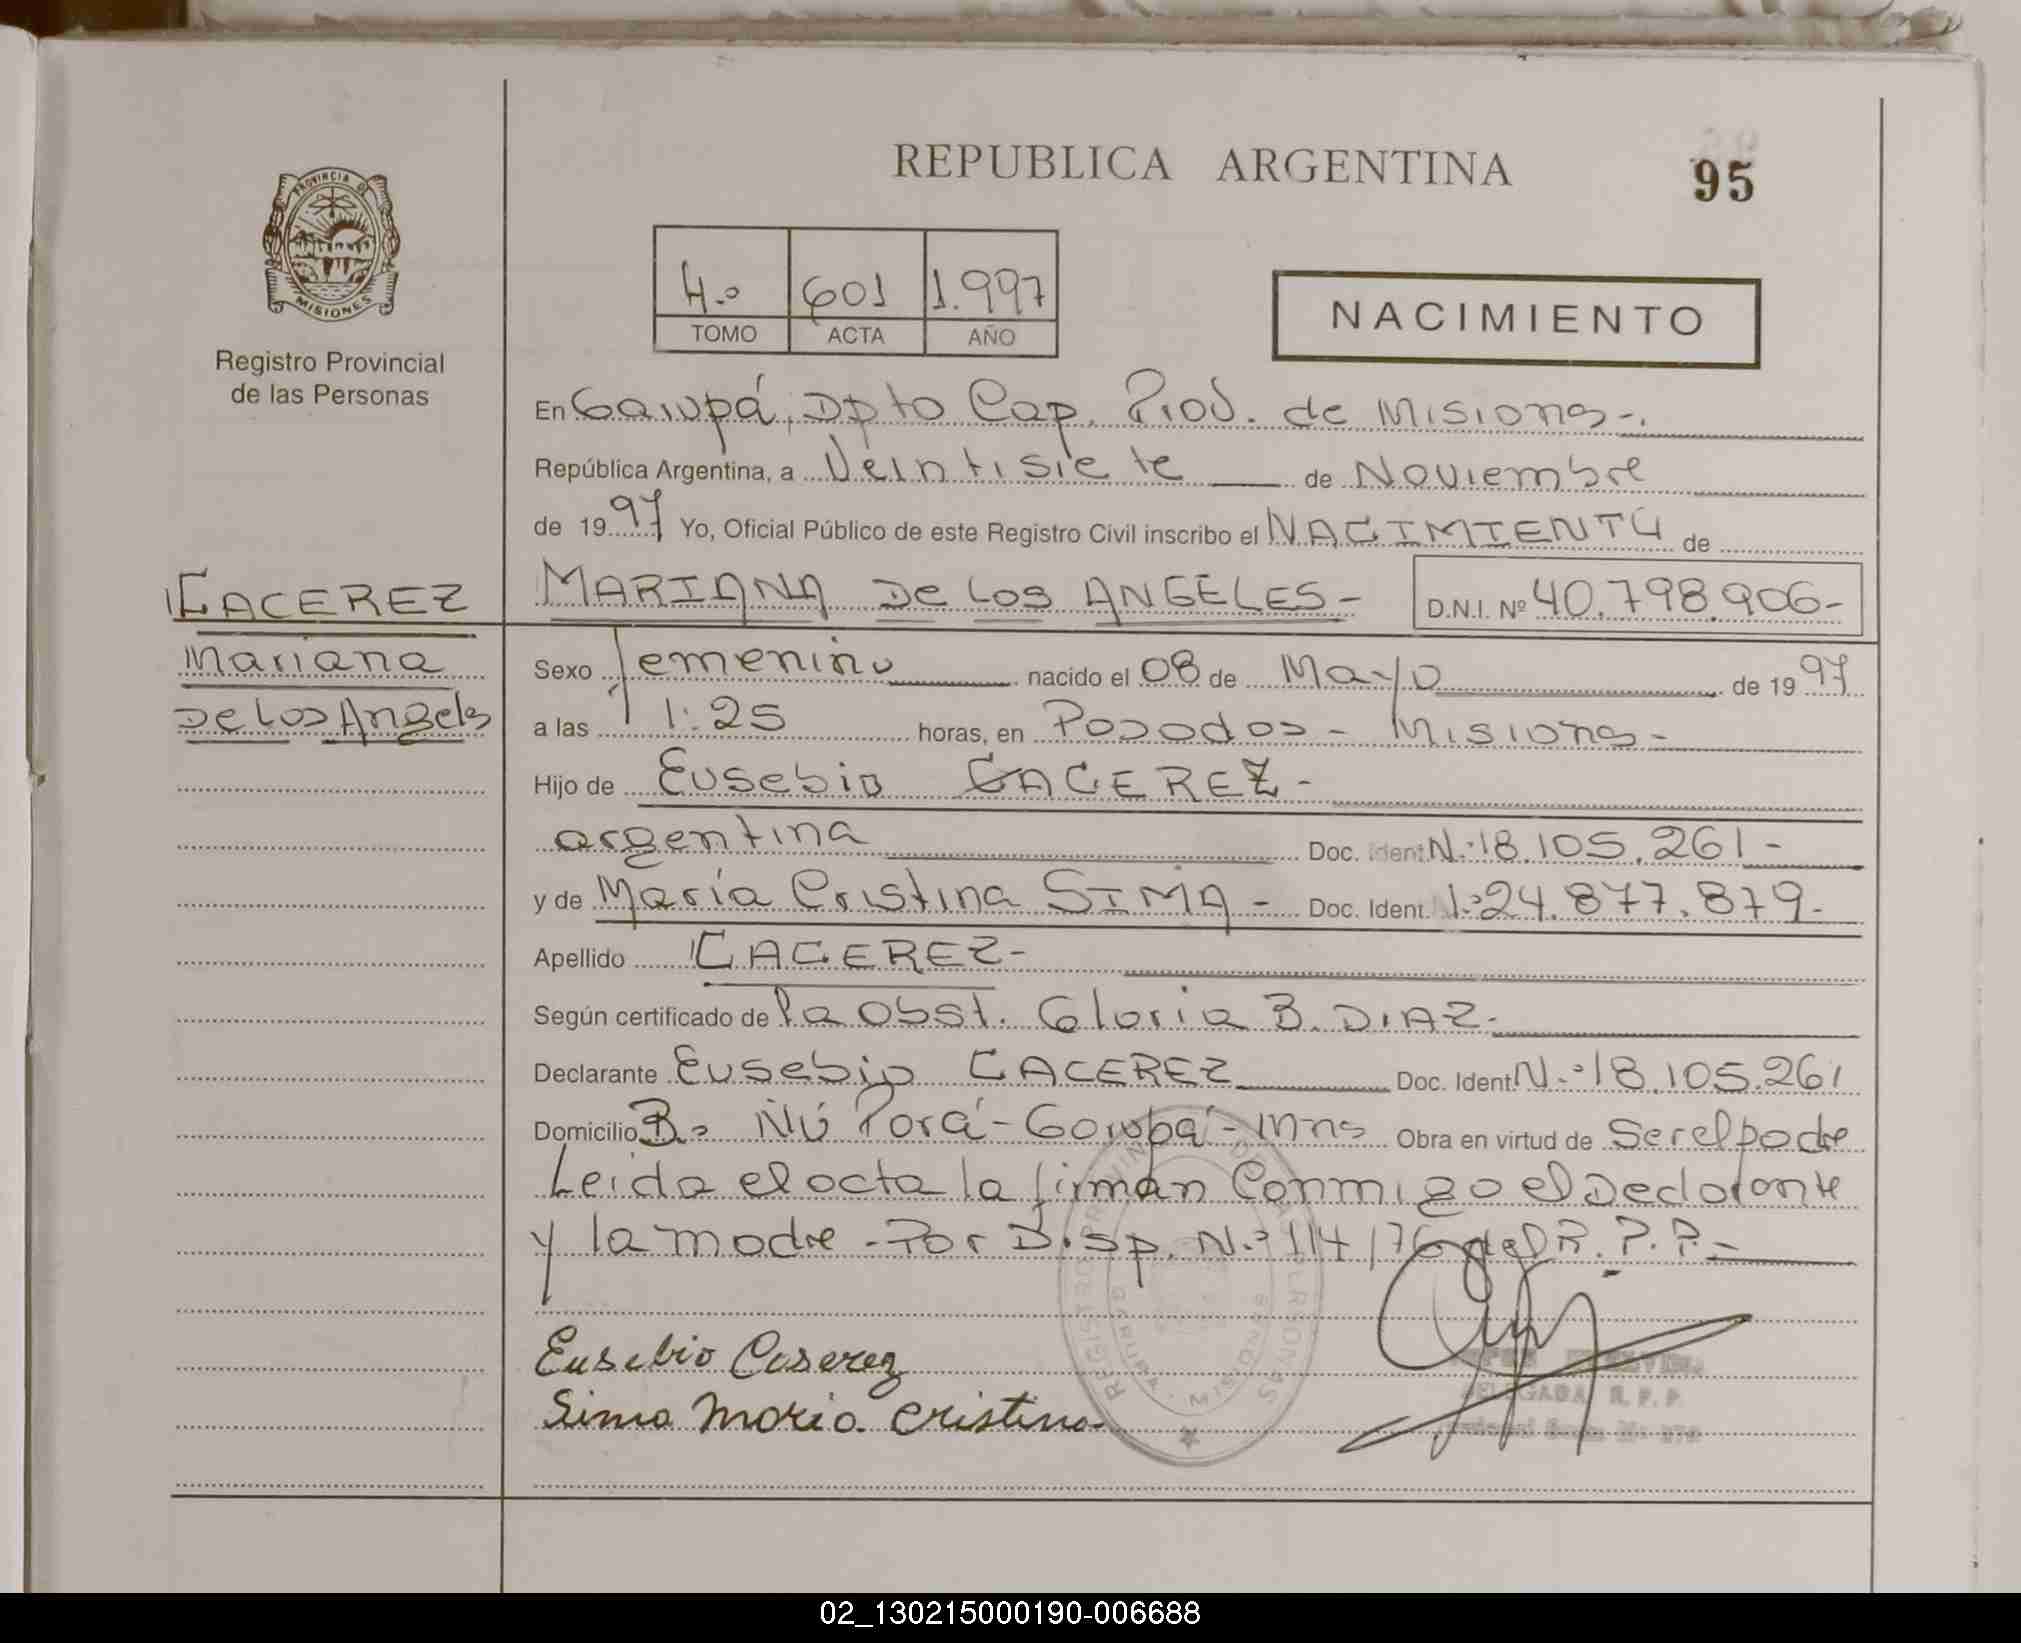 REPUBLICA ARGENTINA
95
PROVINCIA DE
MISIONES
Registro Provincial
de las Personas
4.º 601 1.997
TOMO ACTA AÑO
NACIMIENTO
En Garupá, Dpto Cap. Prov. de Misiones-.
República Argentina, a Veintisiete de Noviembre
de 1997 Yo, Oficial Público de este Registro Civil inscribo el NACIMIENTO de
CACEREZ MARIANA De Los ANGELES- D.N.I. Nº 40.798.906-
Mariana
De Los Angeles
Sexo femenino nacido el 08 de Mayo de 1997
a las 1:25 horas, en Posadas - Misiones-
Hijo de Eusebio CACEREZ-
argentina Doc. Ident. N.º 18.105.261-
y de María Cristina SIMA- Doc. Ident. N.º 24.877.879-
Apellido CACEREZ-
Según certificado de la Obst. Gloria B. DIAZ-
Declarante Eusebio CACEREZ Doc. Ident. N.º 18.105.261
Domicilio B.º Ñú Porá - Garupá - Mnes Obra en virtud de Ser el padre
Leida el acta la firman Conmigo el Declarante
y la madre - Por Disp. N.º 114/76 del R.P.P.-
Eusebio Caserez
Sima Maria Cristina
REGISTRO PROVINCIAL DE LAS PERSONAS
GARUPA - MISIONES
DELEGADA R. P. P.
02_130215000190-006688